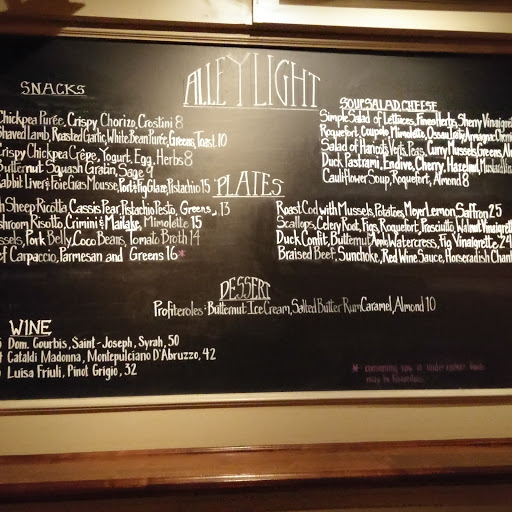 ALLEYLIGHT
SNACKS
Chickpea Purée, Crispy Chorizo, Crostini 8
Shaved Lamb, Roasted Garlic, White Bean Purée, Greens, Toast 10
Crispy Chickpea Crêpe, Yogurt, Egg, Herbs 8
Butternut Squash Gratin, Sage 9
Rabbit Liver & Foie Gras Mousse, Port & Fig Glaze, Pistachio 15
SOUP, SALAD, CHEESE
Simple Salad of Lettuces, Fines Herbs, Sherry Vinaigrette
Roquefort, Coupole, Mimolette, Ossau
Salad of Haricots Verts, Peas, Curry Mussels, Greens
Duck Pastrami, Endive, Cherry, Hazelnut
Cauliflower Soup, Roquefort, Almond 8
PLATES
Sheep Ricotta, Cassis Pear, Pistachio Pesto, Greens, 13
Risotto, Crimini & Maitake, Mimolette 15
Pork Belly, Coco Beans, Tomato Broth 14
Carpaccio, Parmesan and Greens 16*
Roast Cod with Mussels, Potatoes, Meyer Lemon, Saffron 25
Scallops, Celery Root, Figs, Roquefort, Prosciutto, Walnut
Duck Confit, Butternut, Apple, Watercress, Fig Vinaigrette, 24
Braised Beef, Sunchoke, Red Wine Sauce, Horseradish
DESSERT
Profiteroles: Butternut Ice Cream, Salted Butter Rum Caramel, Almond 10
WINE
Dom. Gourbis, Saint-Joseph, Syrah, 50
Cataldi Madonna, Montepulciano D'Abruzzo, 42
Luisa Friuli, Pinot Grigio, 32
* consuming raw or undercooked foods
may be hazardous